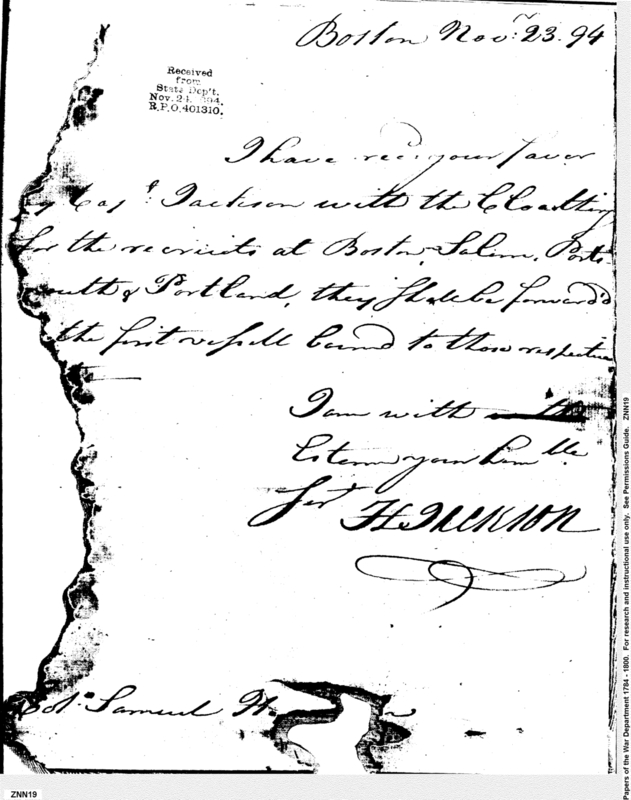 Boston Novr: 23. 94
Received
from
State Dep't.
Nov. 24. 
R.P.O. 401310.
I have recd: your favor
Capt: Jackson with the Cloathing
for the recruits at Boston, Salem, Ports-
mouth & Portland, they shall be forward'd
the first vessell bound to those respective
I am with
Esteem your humble.
Sert
H JACKSON
Colo. Samuel H
ZNN19
Papers of the War Department 1784 - 1800. For research and instructional use only. See Permissions Guide. ZNN19